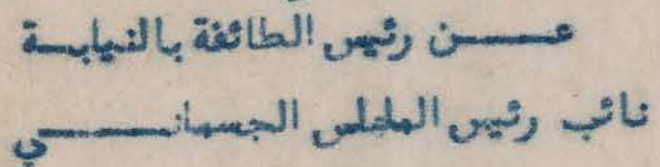 عـــن رئيس الطائفة بالنيابـــة
نائب رئيس المجلس الجسمانـــــي